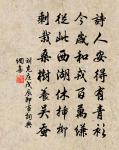 詩人安得有青衫
今歲和戎百萬縑
從此西湖休插柳
剩栽桑樹養吳蠶
劉克莊戊辰即事詞典
網集